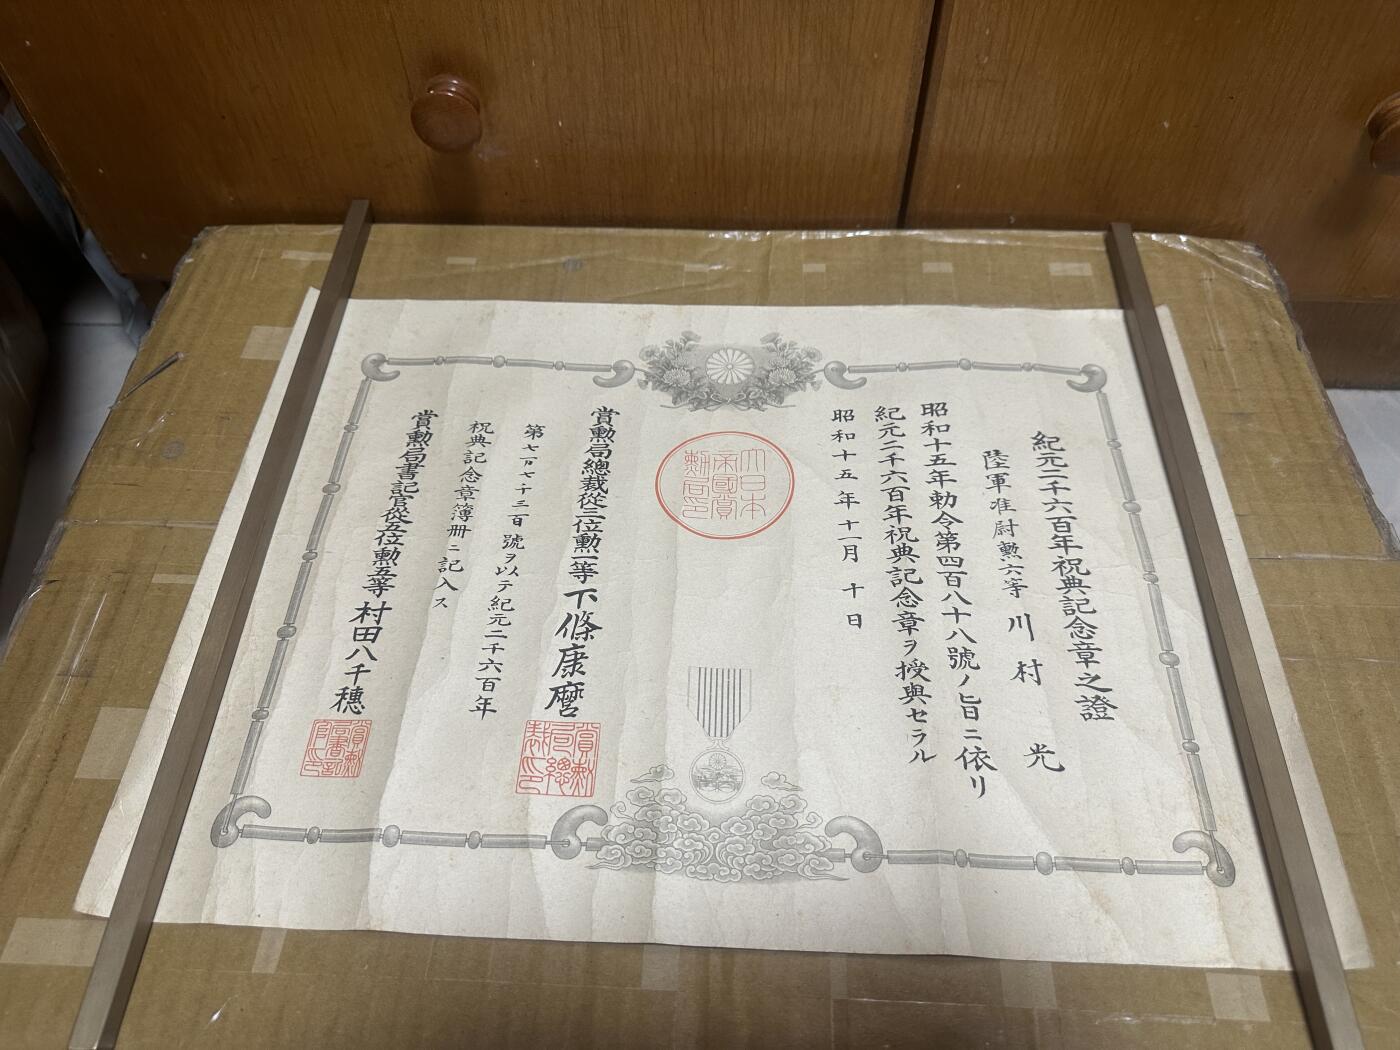 紀元二千六百年祝典記念章之證
陸軍准尉勲六等 川村 光
昭和十五年勅令第四百八十八號ノ旨ニ依リ
紀元二千六百年祝典記念章ヲ授與セラル
昭和十五年十一月十日
大日本
帝國賞
勲局印
賞勲局總裁從三位勲一等下條康麿
賞勲
局總
裁印
號ヲ以テ紀元二千六百年
祝典記念章簿冊ニ記入ス
賞勲局書記官從五位勲五等村田八千穗
賞勲
局書記
官印